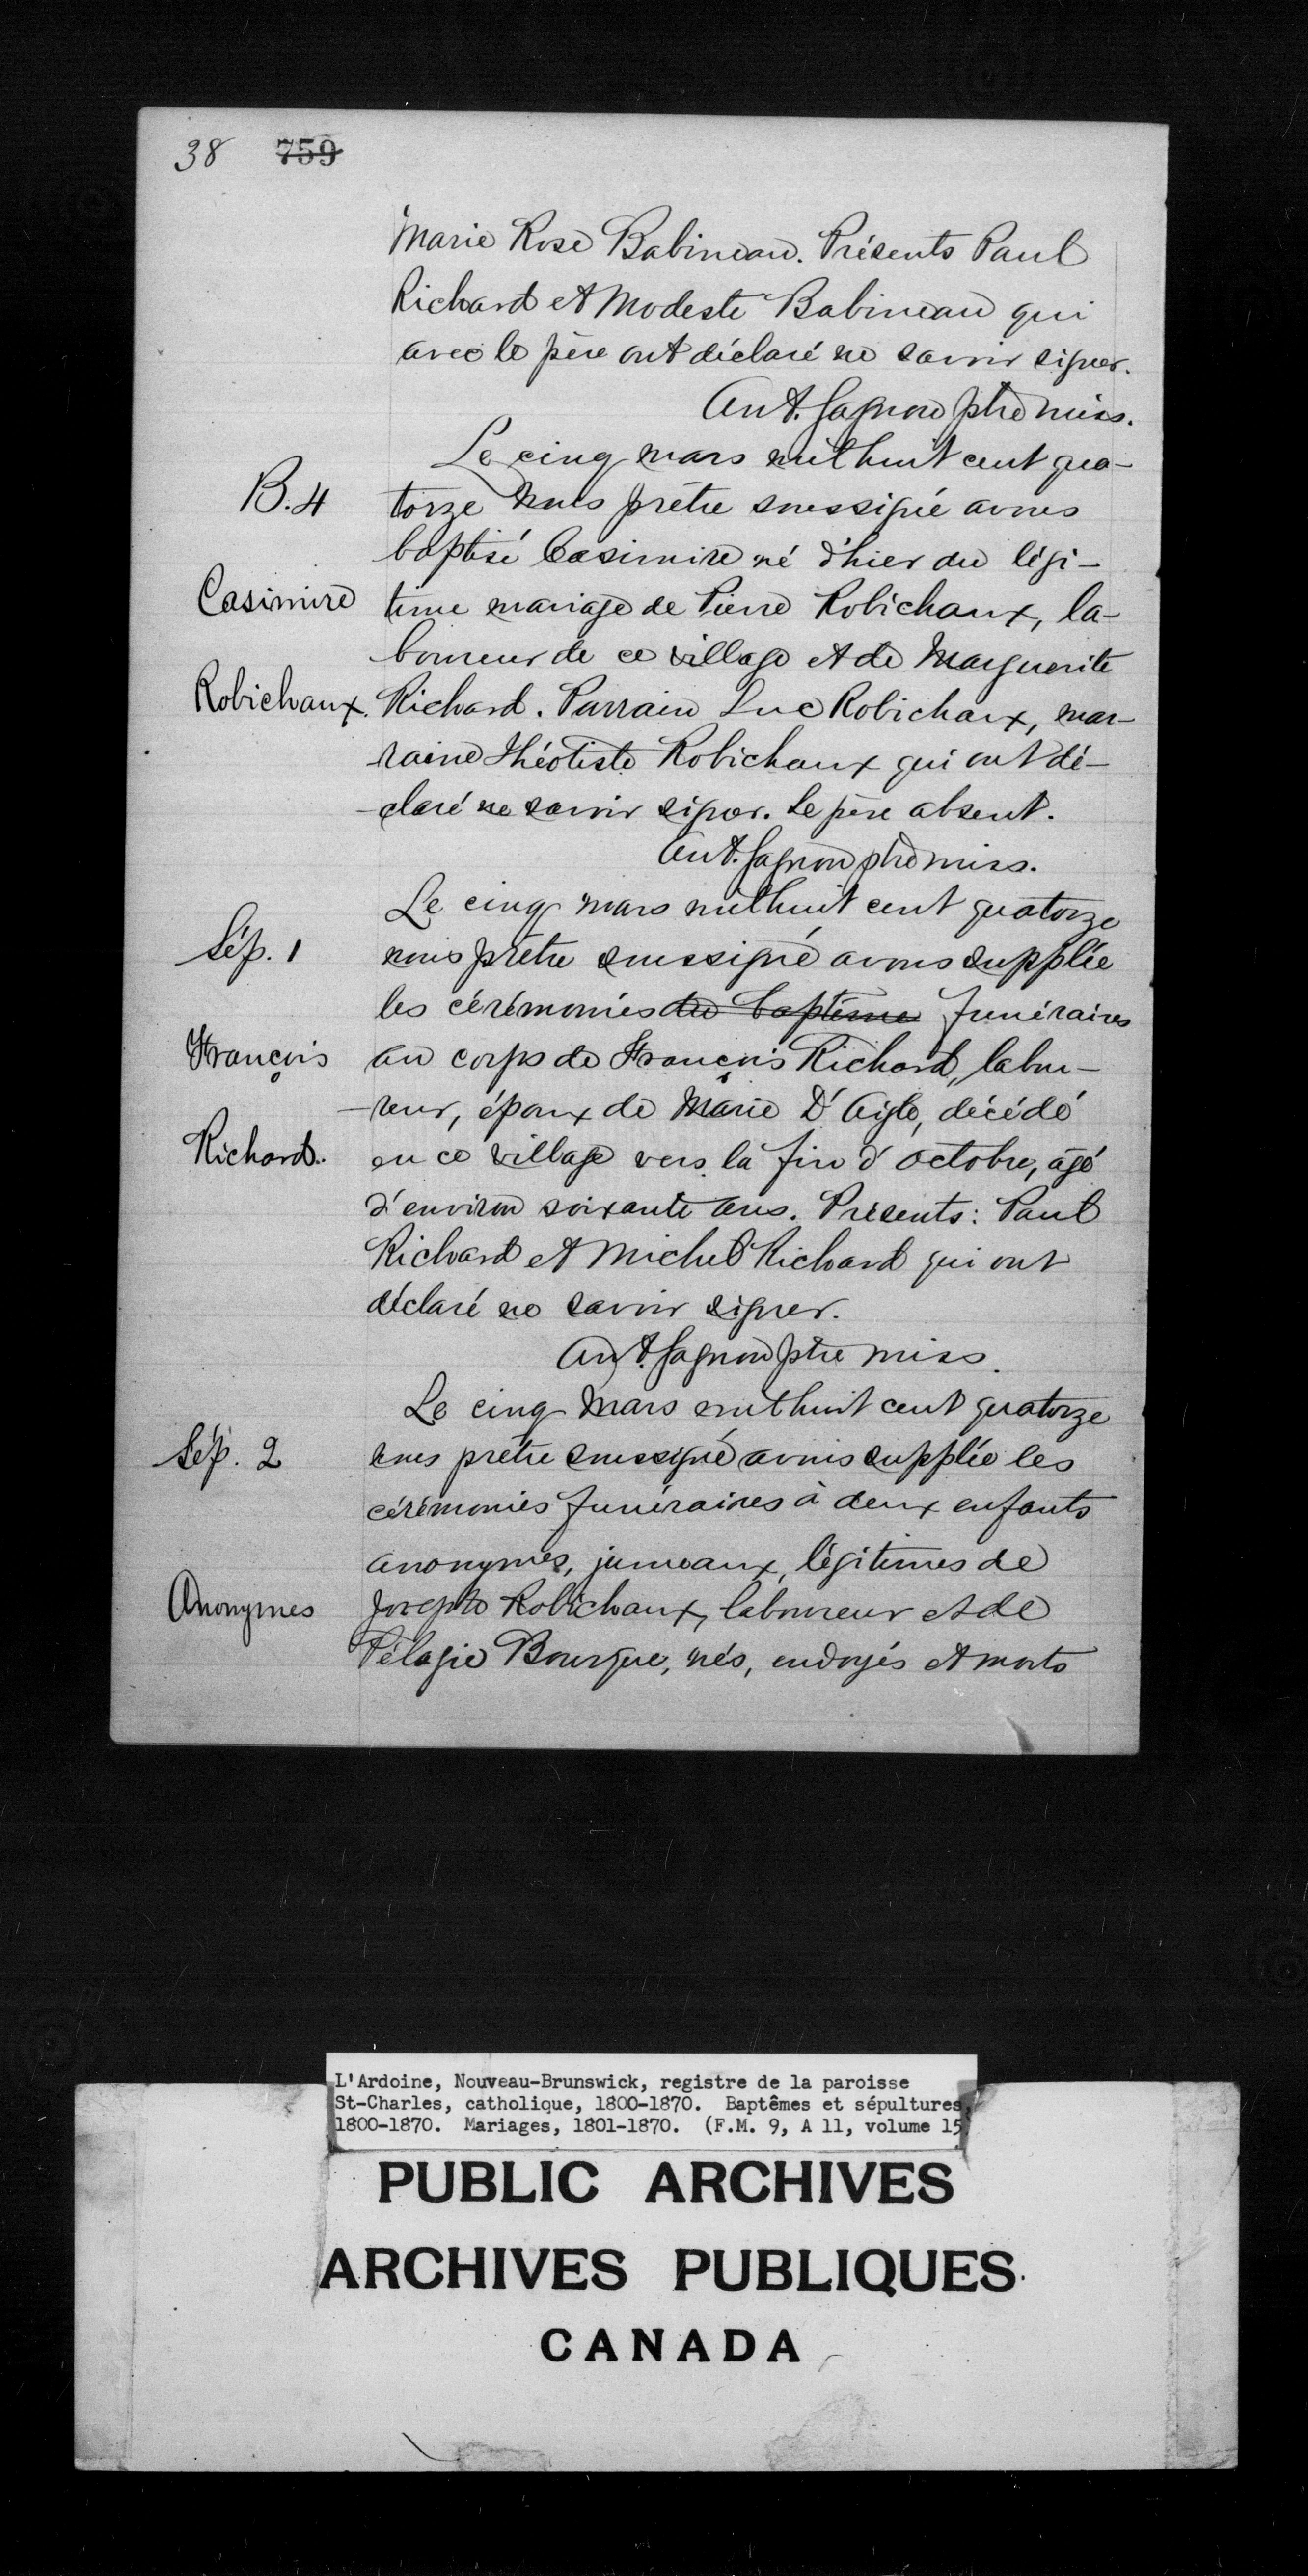 38 759
Marie Rose Babineau. Présents Paul
Richard et Modeste Babineau qui
avec le père ont déclaré ne savoir signer.
Ant. Gagnon ptre miss.
Le cinq mars mil huit cent qua-
B.4 torze nous prêtre soussigné avons
baptisé Casimire né d'hier du légi-
Casimire time mariage de Pierre Robichaux, la-
boureur de ce village et de Marguerite
Robichaux. Richard. Parrain Luc Robichaux, mar-
raine Théotiste Robichaux qui ont dé-
-claré ne savoir signer. Le père absent.
Ant. Gagnon ptre miss.
Le cinq mars mil huit cent quatorze
Sép. 1 nous prêtre soussigné avons supplée
les cérémonies du baptême funéraires
François au corps de François Richard, labou-
-reur, époux de Marie D'Aigle, décédé
Richard. en ce village vers la fin d'octobre, âgé
d'environ soixante ans. Présents: Paul
Richard et Michel Richard qui ont
déclaré ne savoir signer.
Ant. Gagnon ptre miss.
Le cinq Mars mil huit cent quatorze
Sép. 2 nous prêtre soussigné avons supplée les
cérémonies funéraires à deux enfants
anonymes, jumeaux, légitimes de
Anonymes Joseph Robichaux, laboureur et de
Pélagie Bourque, nés, endoyés et morts
L'Ardoine, Nouveau-Brunswick, registre de la paroisse
St-Charles, catholique, 1800-1870. Baptêmes et sépultures,
1800-1870. Mariages, 1801-1870. (F.M. 9, A 11, volume 15
PUBLIC ARCHIVES
ARCHIVES PUBLIQUES
CANADA